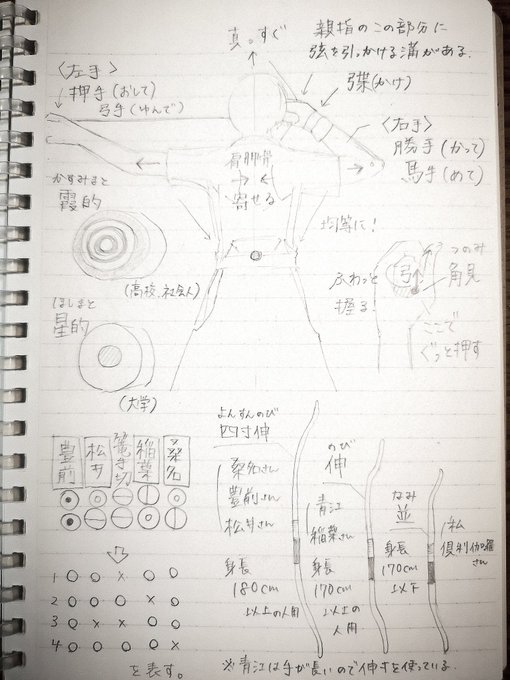 真っすぐ
親指のこの部分に
弦を引っかける溝がある。
<左手>
押手(おして)
弓手(ゆんで)
弽(かけ)
<右手>
勝手(かって)
馬手(めて)
肩胛骨
寄せる
かすみまと
霞的
(高校、社会人)
均等に!
ふわっと
握る!
弓
つのみ
角見
ここで
ぐっと押す
ほしまと
星的
(大学)
豊前
松井
篭手切
稲葉
桑名
1 ○ ○ × ○ ○
2 ○ ○ ○ ○ ×
3 ○ × × ○ ○
4 ○ ○ ○ ○ ×
を表す。
よんすんのび
四寸伸
桑名さん
豊前さん
松井さん
身長
180cm
以上の人用
のび
伸
青江
稲葉さん
身長
170cm
以上の
人用
なみ
並
身長
170cm
以下
私
倶利伽羅
さん
※青江は手が長いので伸寸を使っている。